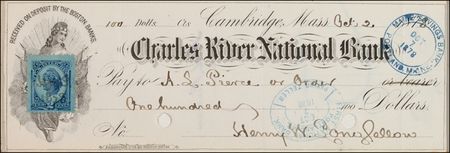 RECEIVED ON DEPOSIT BY THE BOSTON BANKS.
100 Dolls Cts Cambridge, Mass Oct. 2. 187
Charles River National Bank
Pay to A. L. Pierce or Order or bearer
One hundred /100 Dollars.
No. Henry W. Longfellow
SAVINGS BANK
OCT
1879
PORTLAND